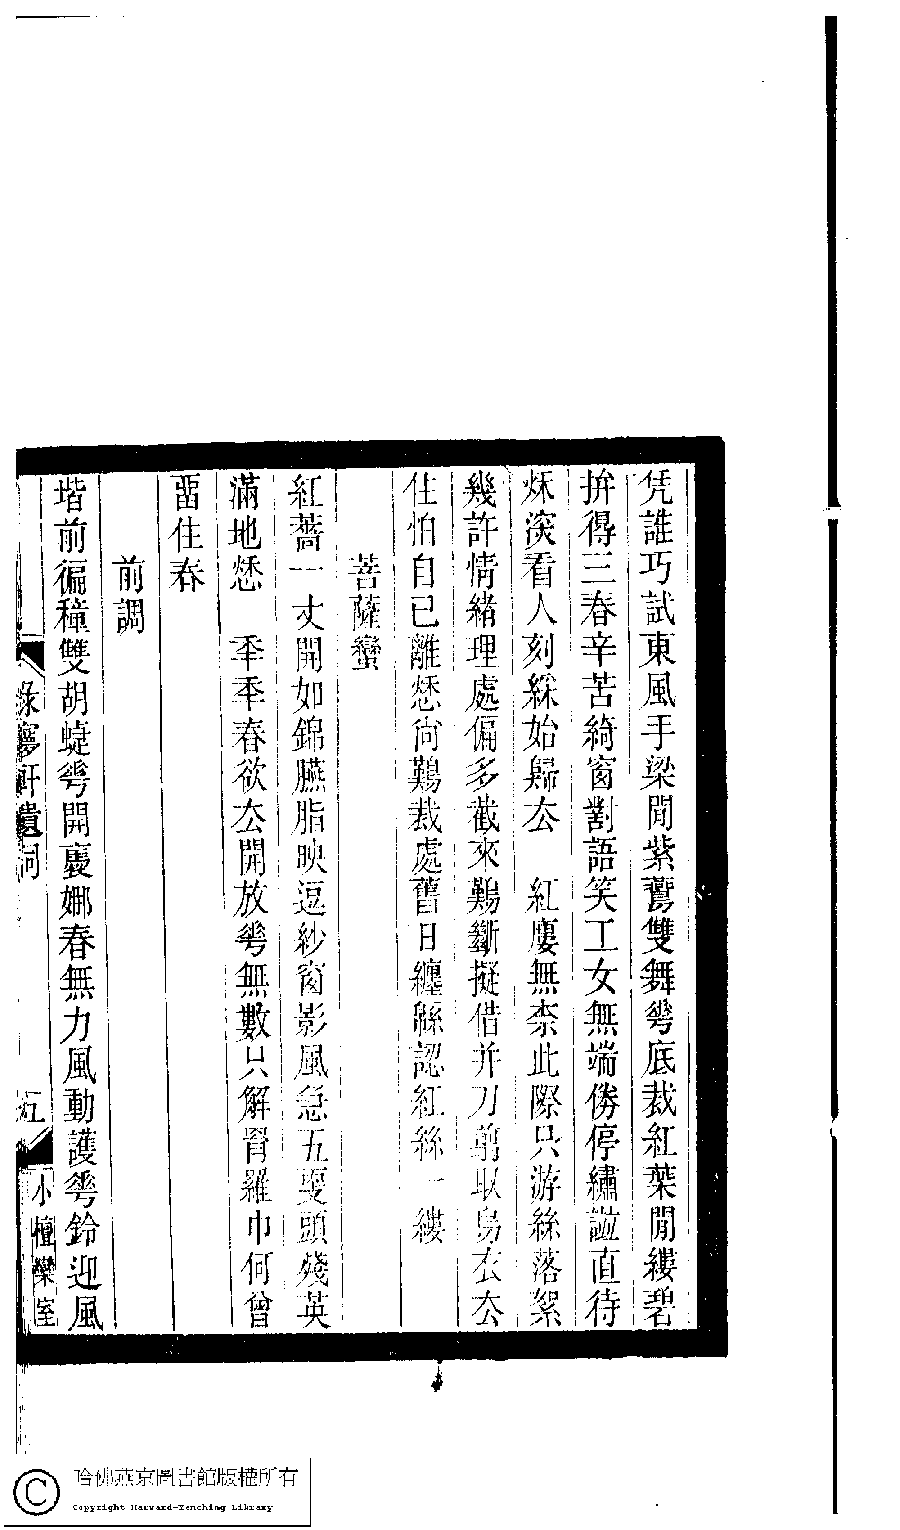 凭誰巧試東風手梁閒紫鷰雙舞蕚底裁紅葉閒縷碧
拚得三春辛苦綺窗對語笑工女無端傍停繡譜直待
烌湥看人刻綵始歸厺　紅廔無柰此際只游絲落絮
幾許情緒理處偏多截來鷄斷擬借并刀剪取烏衣厺
住怕自已離愁尙鷄裁處舊日纏緜認紅絲一縷
菩薩蠻
紅薔一丈開如錦臙脂映逗紗窗影風急五更頭殘英
滿地愁　秊秊春欲厺開放蕚無數只解罥羅巾何曾
畱住春
前調
堦前徧種雙胡蜨蕚開裊娜春無力風動護蕚鈴迎風
綠夢軒遺詞
五
小檀欒室
哈佛燕京圖書館版權所有
Copyright Harvard-Yenching Library